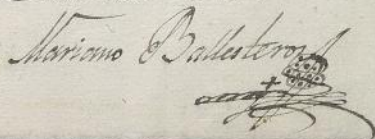 Mariano Ballesteros